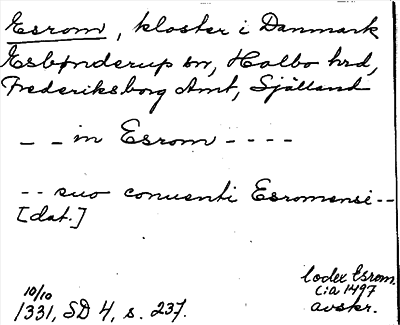 Esrom, kloster i Danmark
Esbønderup sn, Holbo hrd,
Frederiksborg Amt, Själland
_ _ in Esrom - - - -
-- suo conuenti Esromensi --
[dat.]
10/10
1331, SD 4, s. 237.
Codex Esrom.
cia 1497
avskr.